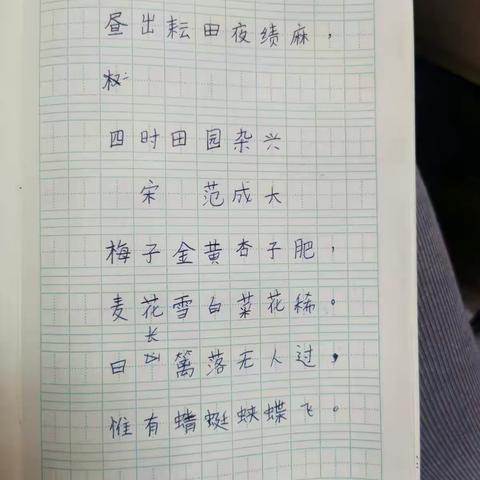 昼出耘田夜绩麻，
四时田园杂兴
宋 范成大
梅子金黄杏子肥，
麦花雪白菜花稀。
长
日篱落无人过，
惟有蜻蜓蛱蝶飞。